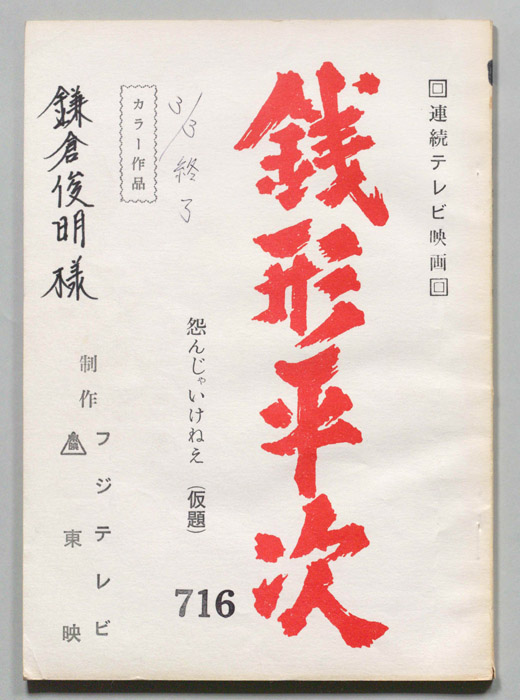 回連続テレビ映画回
銭形平次
怨んじゃいけねえ（仮題）
716
3/3 終了
カラー作品
鎌倉俊明様
制作
フジテレビ
東映